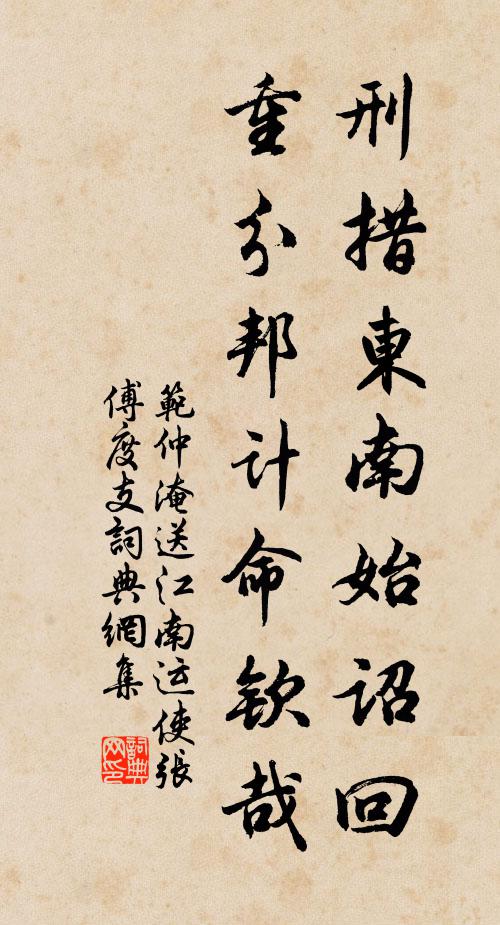 刑措東南始詔回
重分邦計命欽哉
範仲淹送江南运使張
傅度支詞典網集
詞典
网印